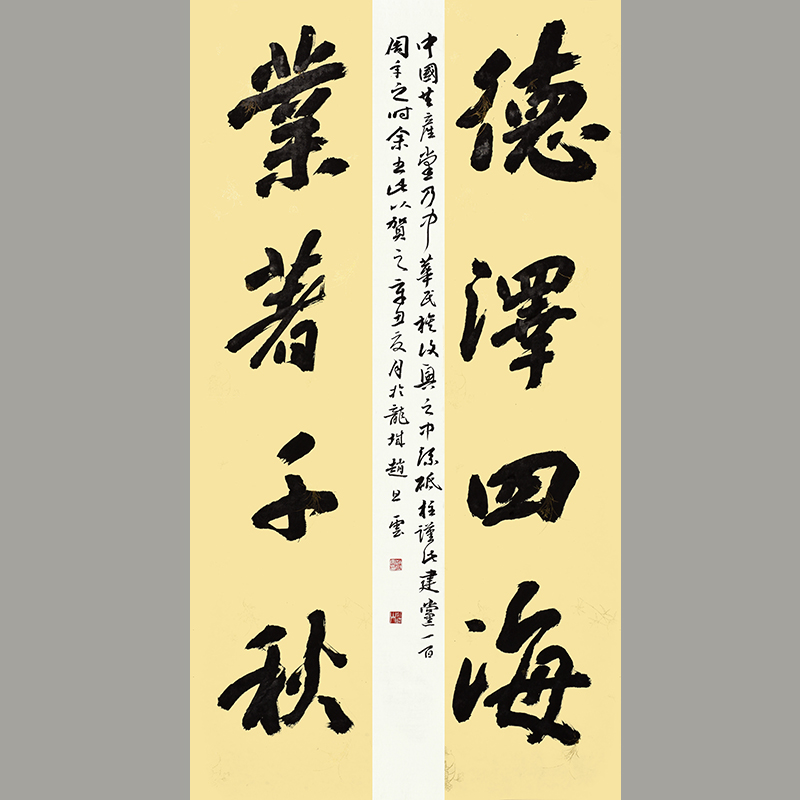 德澤四海
中國共產黨乃中華民族復興之中流砥柱謹此建黨一百
周年之时余书此以賀之辛丑夏月於龍城趙旦雲
業著千秋